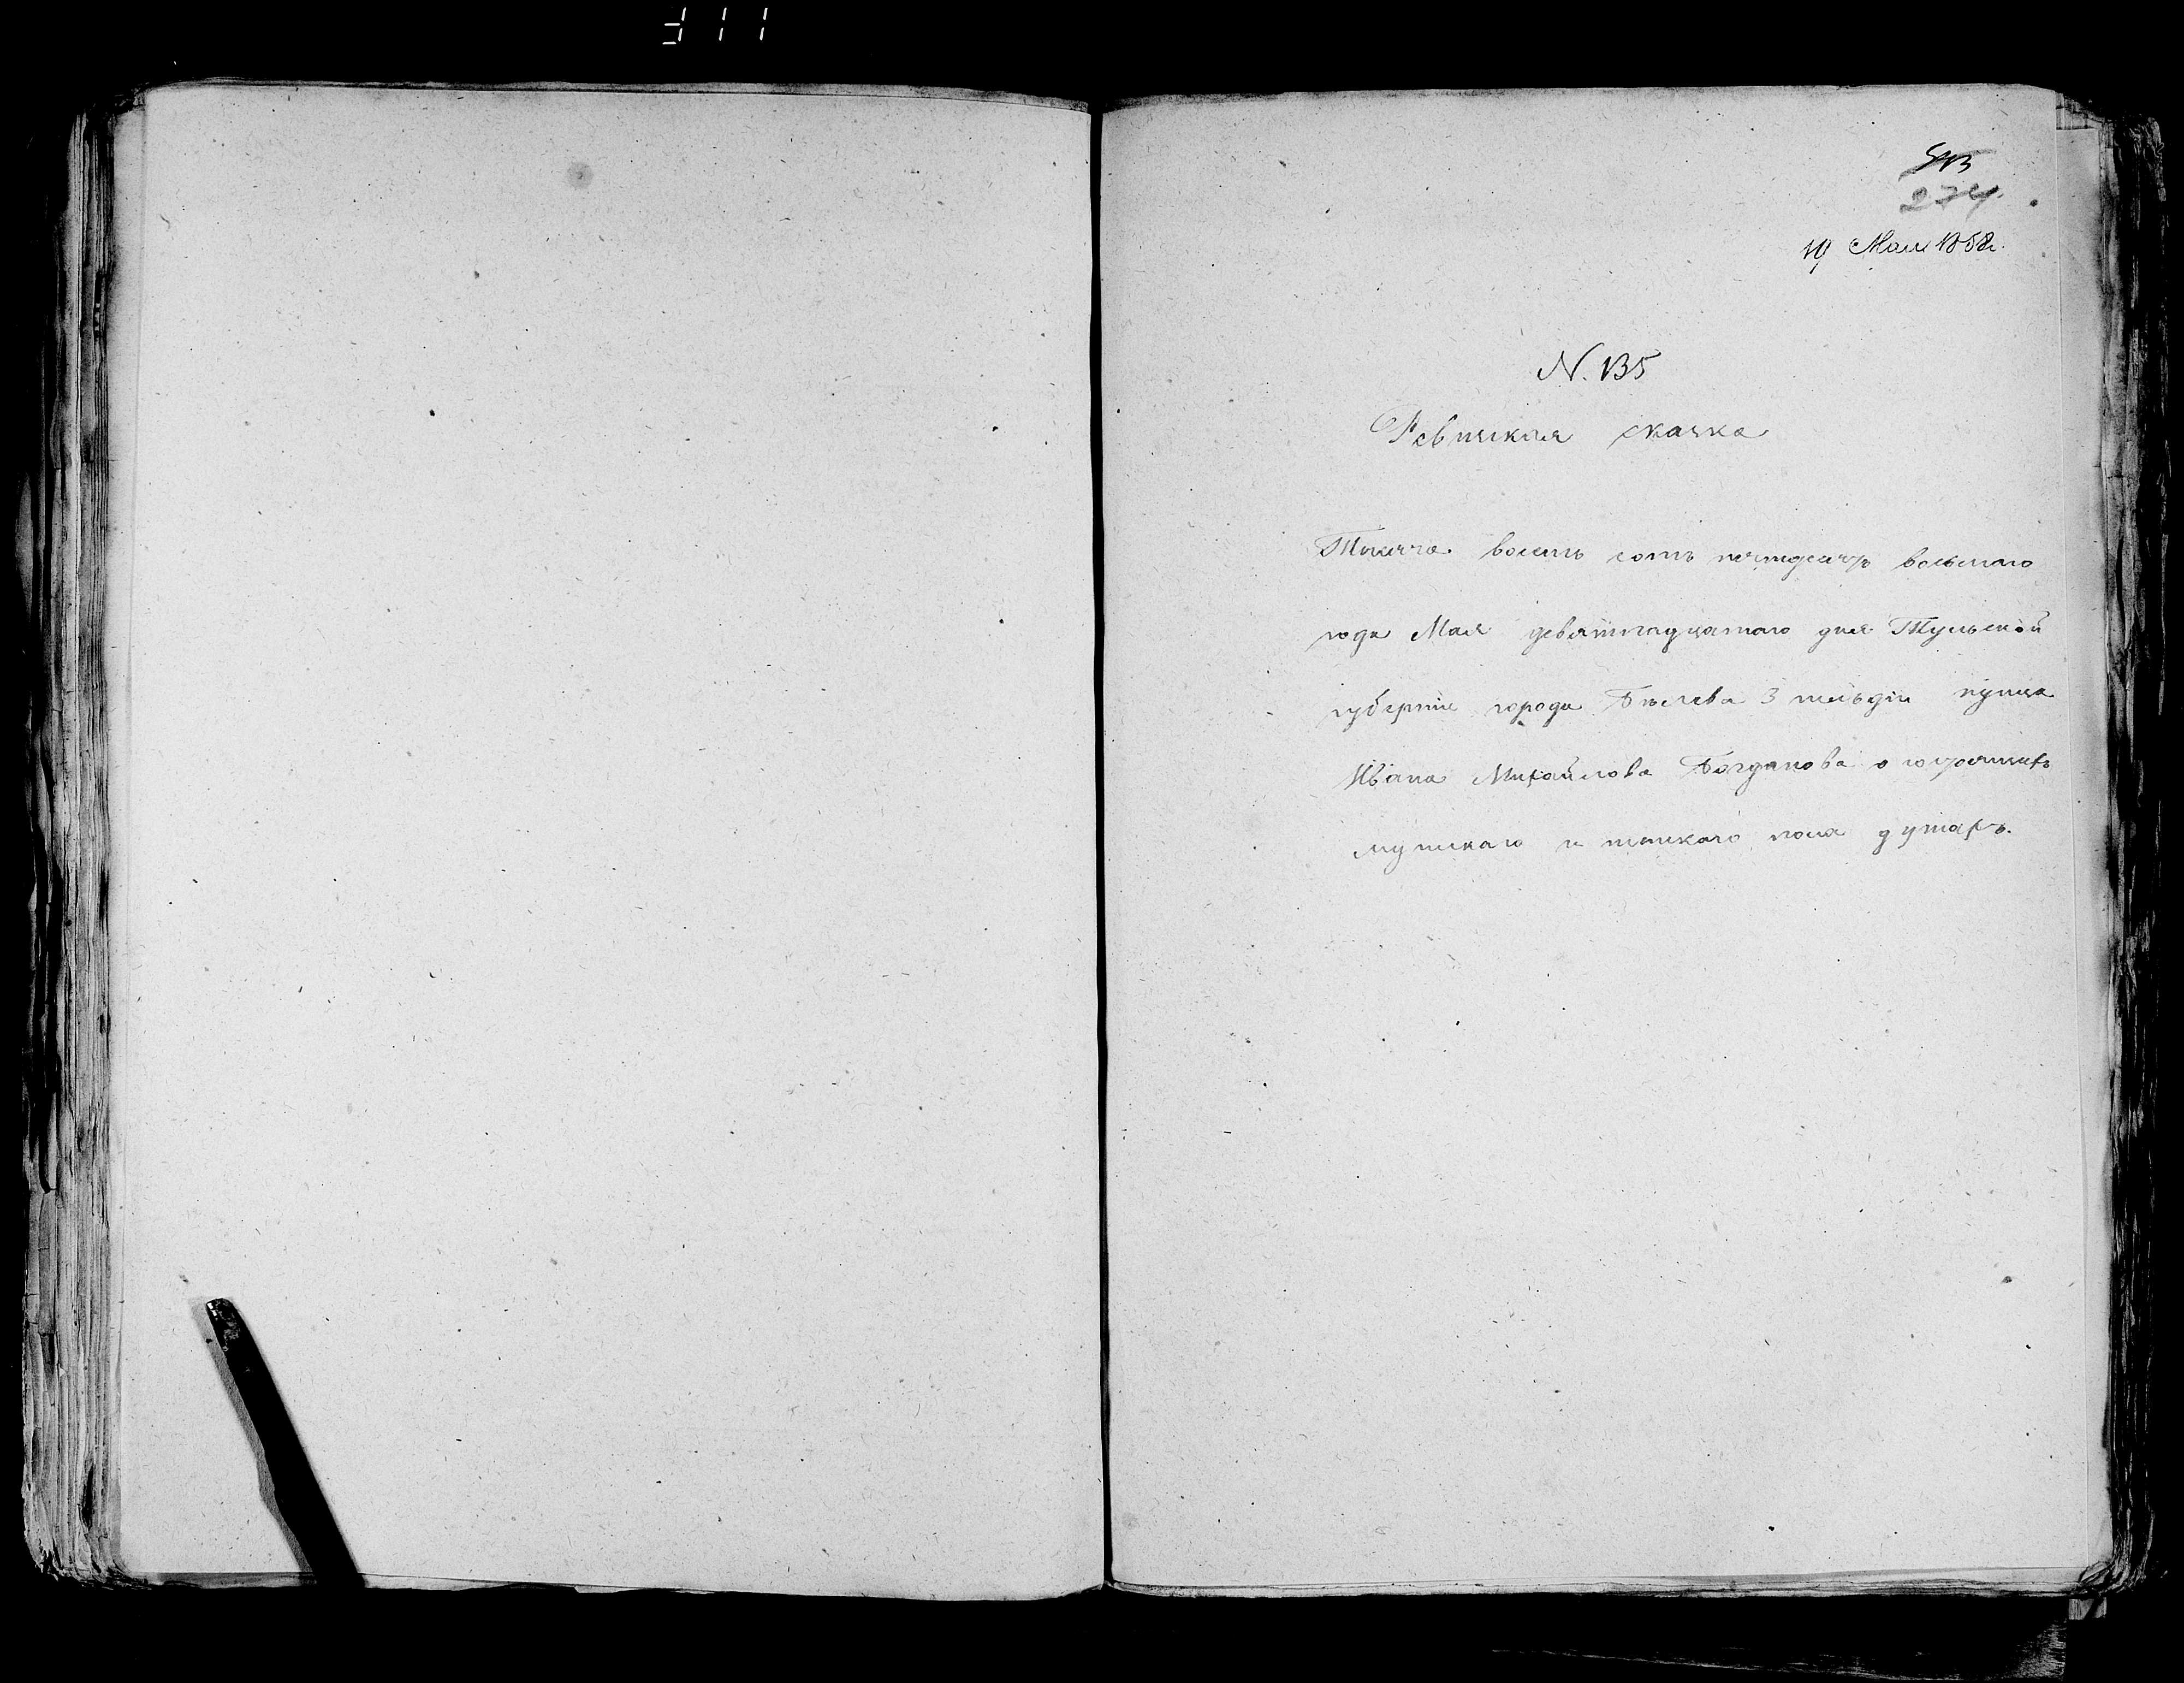 274
19 Мая 1858г.
N. 135
Ревизская сказка
Тысяча восемь сотъ пятидесятъ восьмаго
года Мая девятнадцатаго дня Тульской
губерніи города Бѣлева 3 гильдіи купца
Ивана Михайлова Богданова о состоящихъ
мужскаго и женскаго пола душахъ.